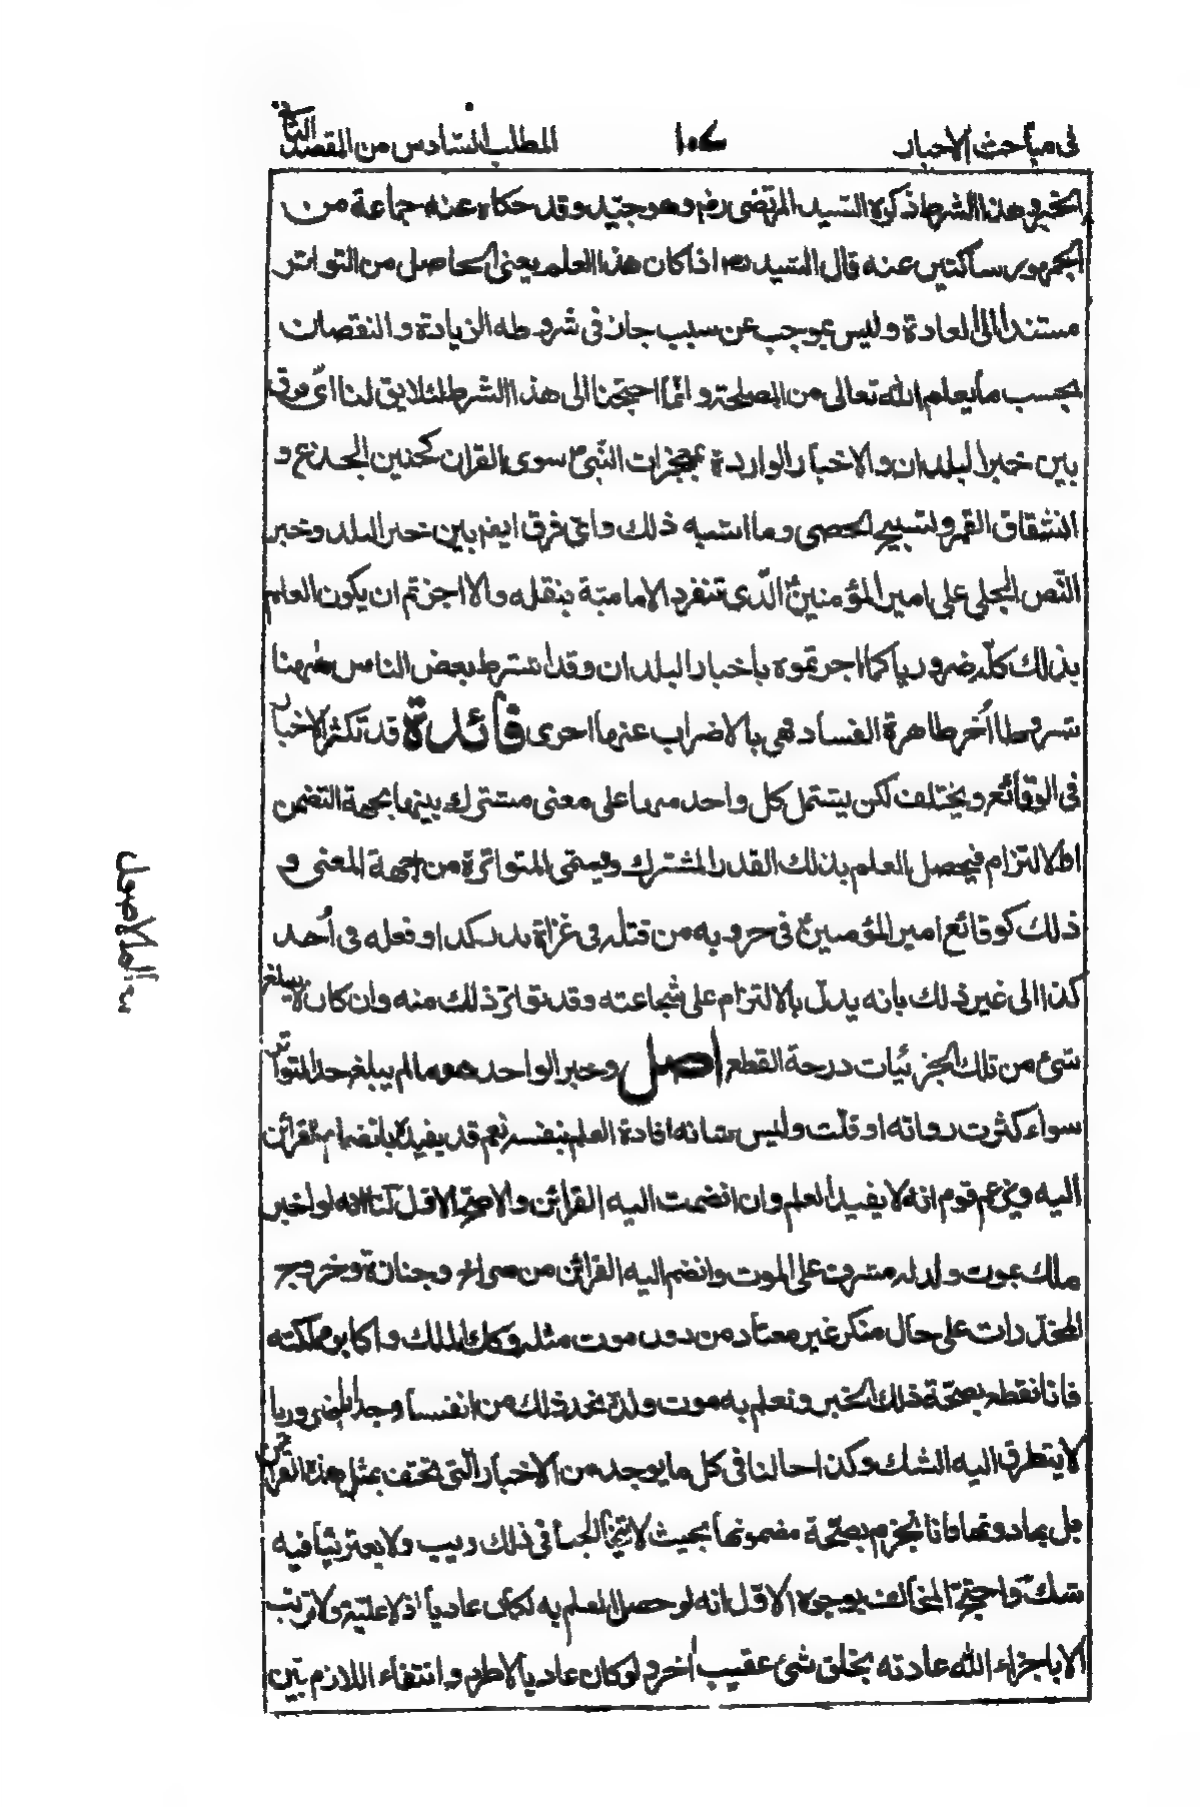 فى مباحث الاخبار
المطلب السادس من المقصد الثانى
الخبر وهذا الشرط ذكره السيد المرتضى رض وهو جيّد وقد حكاه عنه جماعة من
الجمهور ساكتين عنه قال السيد ره اذا كان هذا العلم يعنى الحاصل من التواتر
مستندا الى العادة وليس بموجب عن سبب جاز فى شروطه الزيادة والنقصان
بحسب ما يعلم الله تعالى من المصلحة وانّما احتجنا الى هذا الشرط لئلا يق لنا اىّ فرق
بين خبر البلدان والاخبار الواردة بمعجزات النّبىّ سوى القران كحنين الجذع و
انشقاق القمر وتسبيح الحصى وما اشبه ذلك واىّ فرق ايض بين خبر البلد وخبر
النّص الجلى على امير المؤمنين الّذى تنفرد الامامية بنقله والا اجزتم ان يكون العلم
بذلك كلّه ضروريا كما اجزتموه باخبار البلدان وقد اشترط بعض الناس ههنا
شروطا اُخر ظاهرة الفساد فهى بالاضراب عنها احرى فائدة قد تكثر الاخبار
فى الوقائع ويختلف لكن يشتمل كل واحد منها على معنى مشترك بينها بجهة التضمن
او الالتزام فيحصل العلم بذلك القدر المشترك ويسمّى المتواترة من جهة المعنى و
ذلك كوقائع امير المؤمنين فى حروبه من قتله فى غزاة بدر كذا وفعله فى اُحد
كذا الى غير ذلك بانه يدلّ بالالتزام على شجاعته وقد تواتر ذلك منه وان كان لا يبلغ
شئ من تلك الجزئيات درجة القطع اصل وخبر الواحد هو ما لم يبلغ حد المتواتر
سواء كثرت رواته او قلّت وليس شانه افادة العلم بنفسه نعم قد يفيد بانضمام القرائن
اليه وزعم قوم انه لا يفيد العلم وان انضمت اليه القرائن والاصحّ الاول لنا انه لو اخبر
ملك بموت ولد له مشرف على الموت وانضم اليه القرائن من صراخ وجنازة وخروج
المخدّرات على حال منكر غير معتاد من دون موت مثله وكك الملك واكابر مملكته
فانا نقطع بصحّة ذلك الخبر ونعلم به موت ولده نجد ذلك من انفسنا وجدانا ضروريا
لا يتطرق اليه الشك وكذا حالنا فى كل ما يوجد من الاخبار الّتى تحتف بمثل هذه القرائن
بل بما دونها فانا نجزم بصحّة مضمونها بحيث لا يتخالجنا فى ذلك ريب ولا يعترينا فيه
شك واحتجّ المخالف بوجوه الاوّل انه لو حصل العلم به لكان عادياً اذ لا علّية ولا ترتب
الا باجراء الله عادته بخلق شئ عقيب اخر ولو كان عادياً لاطرد وانتفاء اللازم بيّن
معالم الاصول